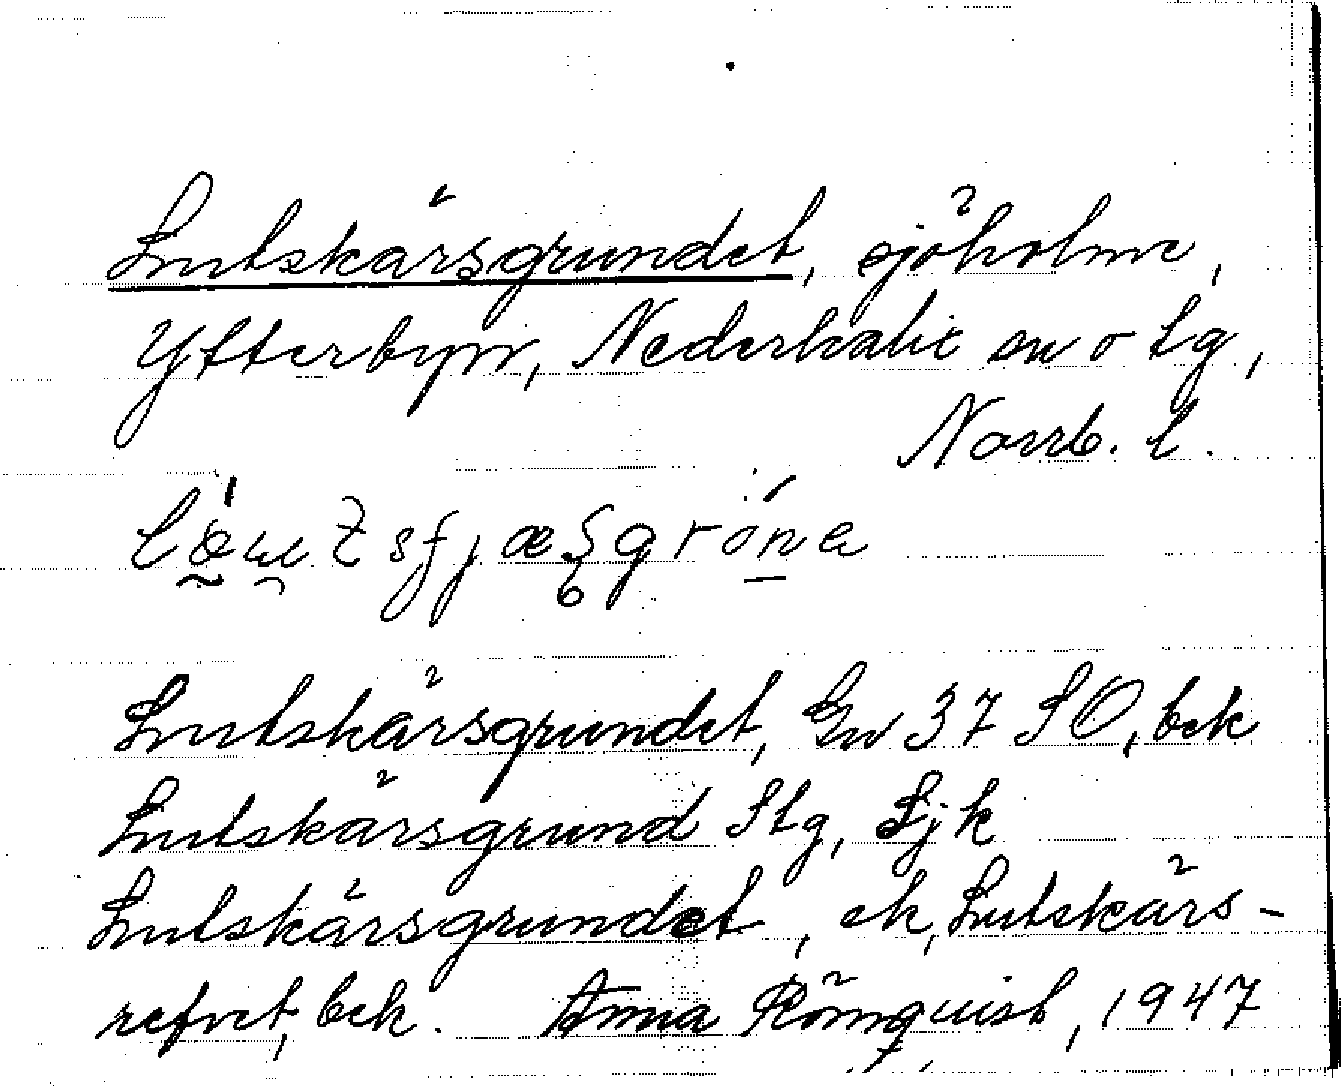 Lutskärsgrundet, sjöholme,
Ytterbyn, Nederkalix sn o tg,
Norrb. l.
Lutskärsgrundet, Gw 37 SO, bek
Lutskärsgrund Stg, Sjk
Lutskärsgrundet, ek, Lutskärs-
refvet, bek. Anna Rönnquist, 1947